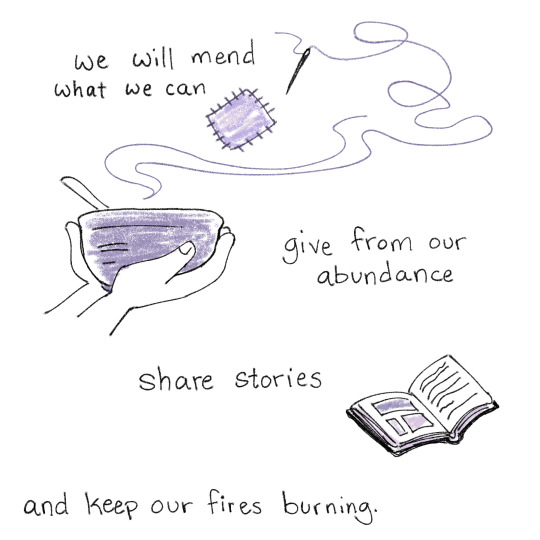 we will mend
what we can
give from our
abundance
share stories
and keep our fires burning.